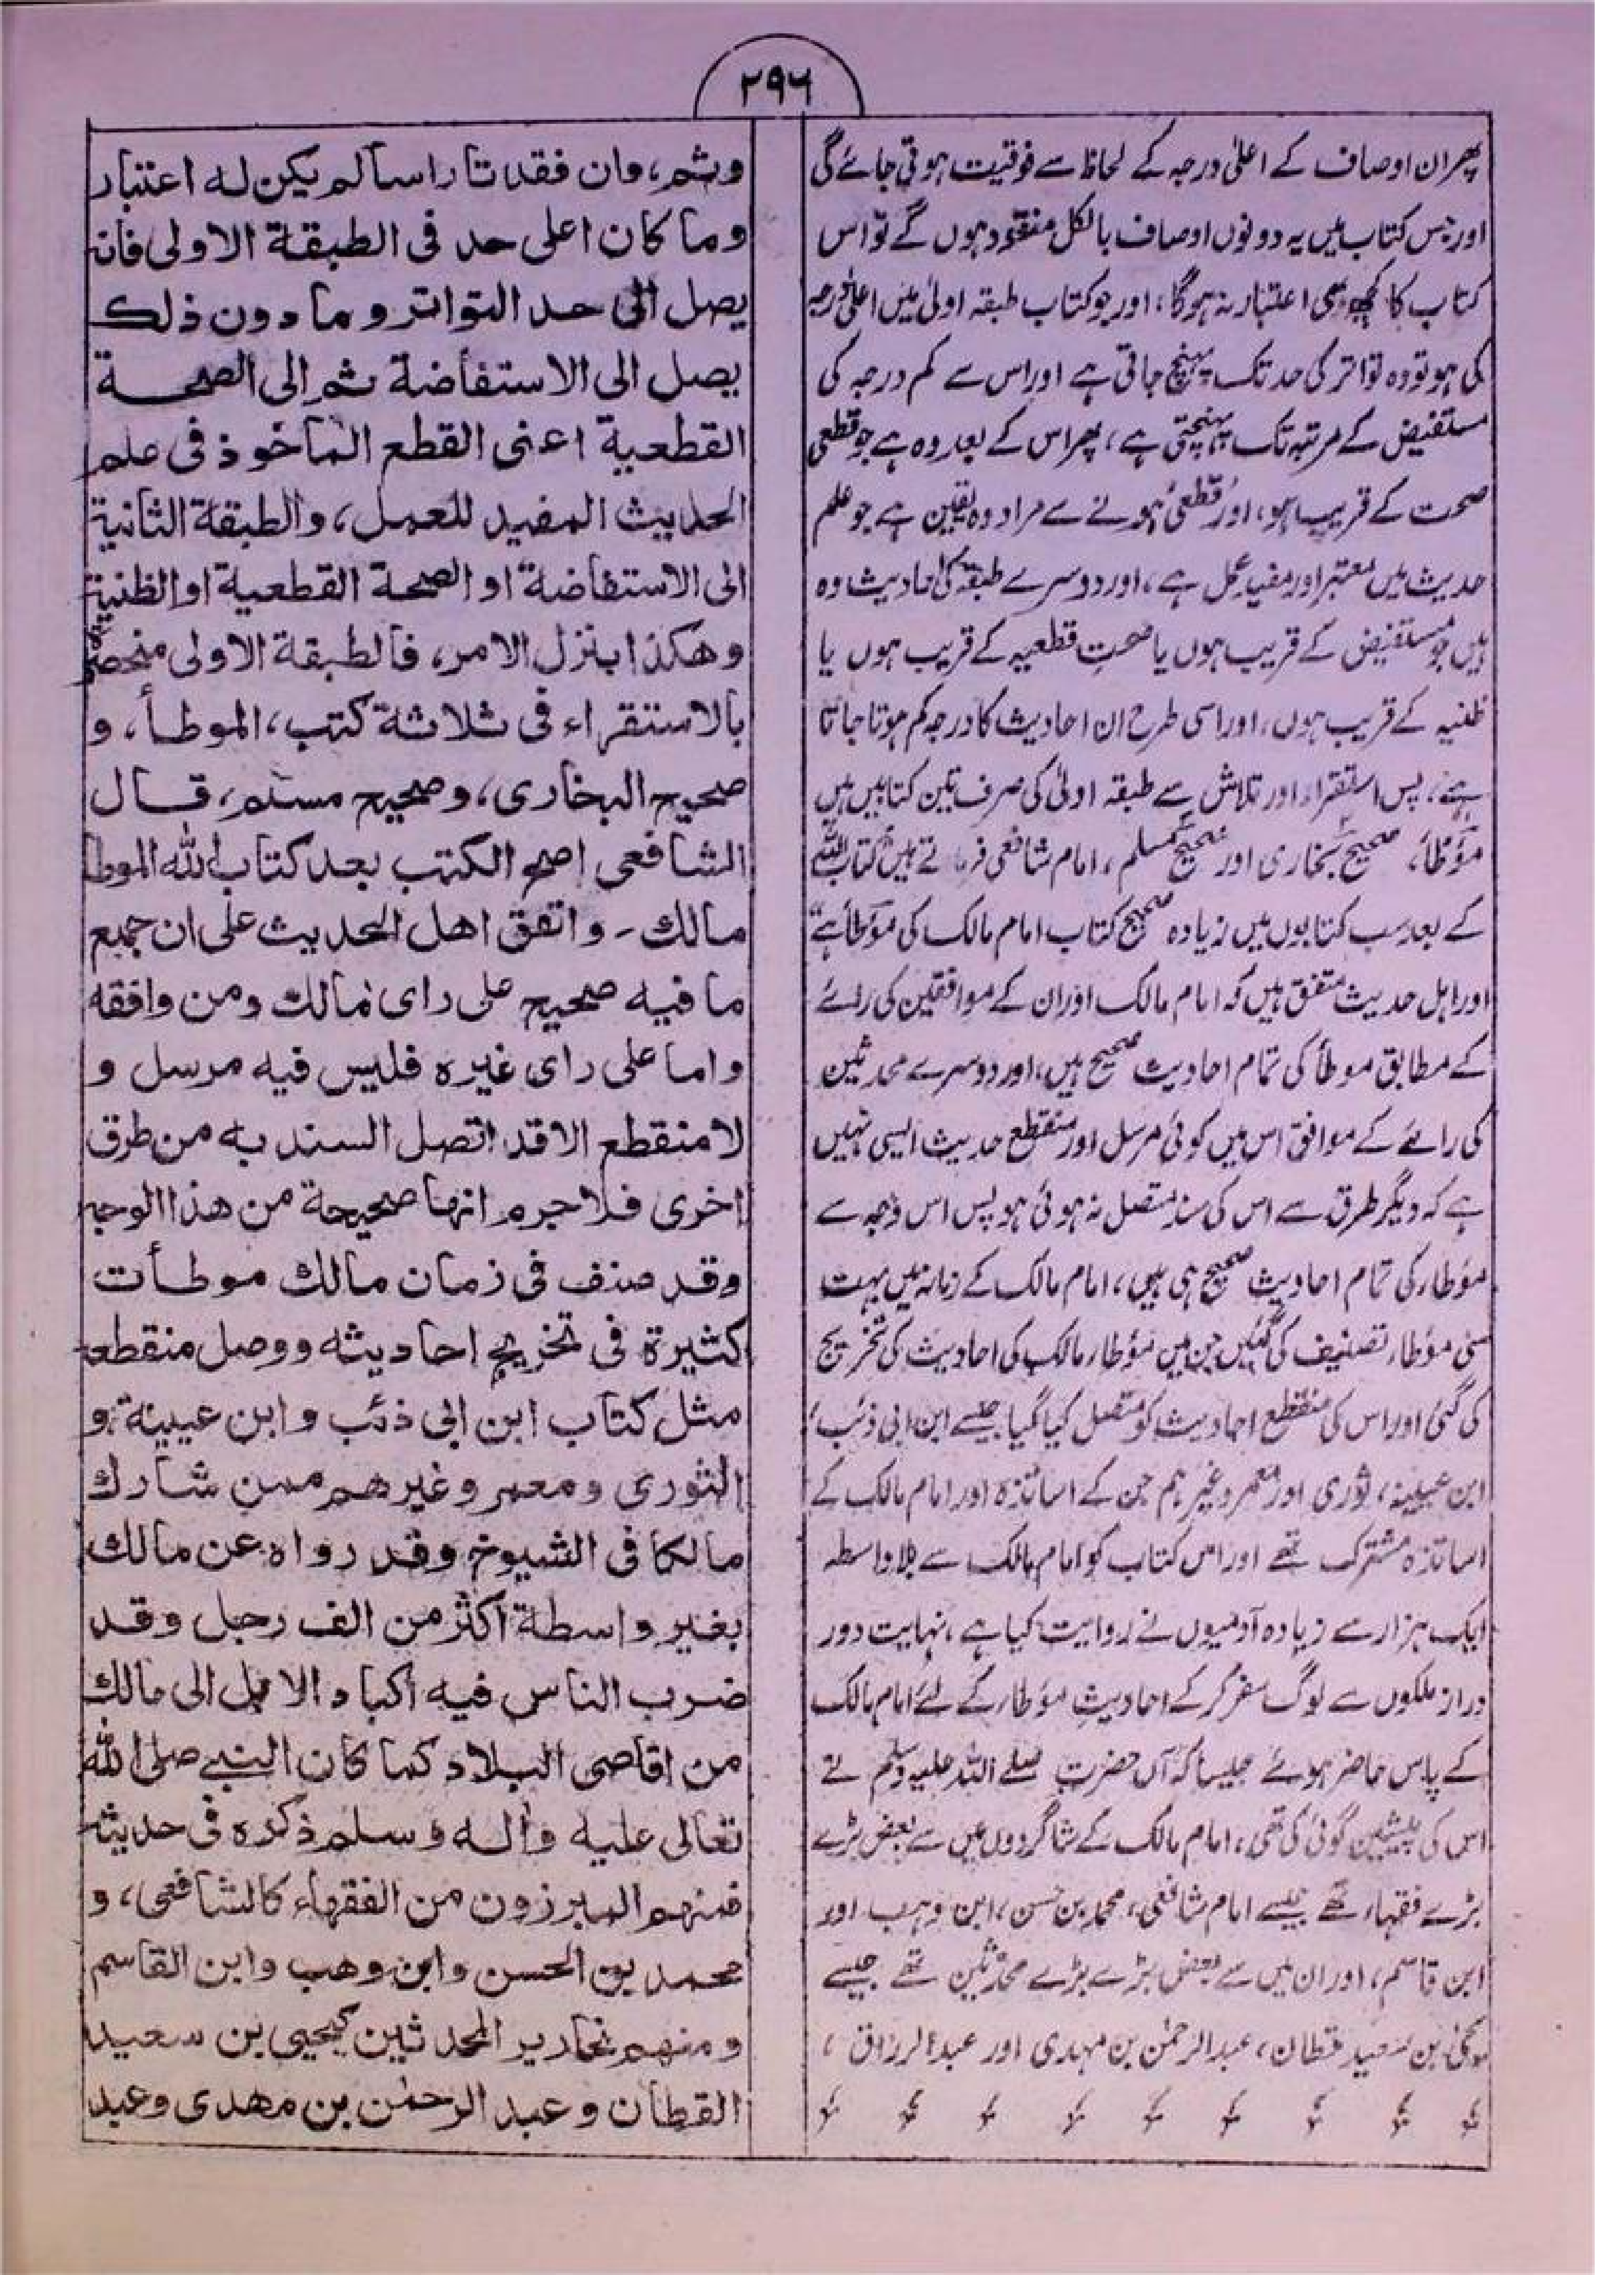 ۲۹۶
پھر ان اوصاف کے اعلیٰ درجہ کے لحاظ سے فوقیت ہوتی جائے گی
اور جس کتاب میں یہ دونوں اوصاف بالکل مفقود ہوں گے تو اس
کتاب کا کچھ بھی اعتبار نہ ہوگا، اور جو کتاب طبقہ اولیٰ میں اعلیٰ درجہ
کی ہو تو وہ تواتر کی حد تک پہنچ جاتی ہے اور اس سے کم درجہ کی
مستفیض کے مرتبہ تک پہنچتی ہے، پھر اس کے بعد وہ ہے جو قطعی
صحت کے قریب ہو، اور قطعی ہونے سے مراد وہ یقین ہے جو علم
حدیث میں معتبر اور مفید عمل ہے، اور دوسرے طبقہ کی احادیث وہ
ہیں جو مستفیض کے قریب ہوں یا صحت قطعیہ کے قریب ہوں یا
ظنیہ کے قریب ہوں، اور اسی طرح ان احادیث کا درجہ کم ہوتا جاتا
ہے، پس استقراء اور تلاش سے طبقہ اولیٰ کی صرف تین کتابیں ہیں
مؤطا، صحیح بخاری اور صحیح مسلم، امام شافعی فرماتے ہیں کتاب اللہ
کے بعد سب کتابوں میں زیادہ صحیح کتاب امام مالک کی مؤطا ہے
اور اہل حدیث متفق ہیں کہ امام مالک اور ان کے موافقین کی رائے
کے مطابق موطأ کی تمام احادیث صحیح ہیں، اور دوسرے محدثین
کی رائے کے موافق اس میں کوئی مرسل اور منقطع حدیث ایسی نہیں
ہے کہ دیگر طرق سے اس کی سند متصل نہ ہوئی ہو پس اس وجہ سے
مؤطا کی تمام احادیث صحیح ہی ہیں، امام مالک کے زمانہ میں بہت
سی مؤطا تصنیف کی گئیں جن میں مؤطا مالک کی احادیث کی تخریج
کی گئی اور اس کی منقطع احادیث کو متصل کیا گیا جیسے ابن ابی ذئب،
ابن عیینہ، ثوری اور معمر وغیرہم جن کے اساتذہ اور امام مالک کے
اساتذہ مشترک تھے اور اس کتاب کو امام مالک سے بلا واسطہ
ایک ہزار سے زیادہ آدمیوں نے روایت کیا ہے، نہایت دور
دراز ملکوں سے لوگ سفر کر کے احادیث مؤطا کے لئے امام مالک
کے پاس حاضر ہوئے جیسا کہ آں حضرت صلے اللہ علیہ وسلم نے
اس کی پیشین گوئی کی تھی، امام مالک کے شاگردوں میں سے بعض بڑے
بڑے فقہاء تھے جیسے امام شافعی، محمد بن حسن، ابن وہب اور
ابن قاسم، اور ان میں سے بعض بڑے بڑے محدثین تھے جیسے
یحیٰی بن سعید قطان، عبد الرحمٰن بن مہدی اور عبد الرزاق،
وثم، وان فقدتا راسا لم يكن له اعتبار
وما كان اعلى حد فى الطبقة الاولى فانه
يصل الى حد التواتر وما دون ذلك
يصل الى الاستفاضة ثم الى الصحة
القطعية اعنى القطع الماخوذ فى علم
الحديث المفيد للعمل، والطبقة الثانية
الى الاستفاضة او الصحة القطعية او الظنية
وهكذا ينزل الامر، فالطبقة الاولى منحصرة
بالاستقراء فى ثلاثة كتب، الموطأ، و
صحيح البخارى، وصحيح مسلم، قال
الشافعى اصح الكتب بعد كتاب الله الموطا
مالك - واتفق اهل الحديث على ان جميع
ما فيه صحيح على راى مالك ومن وافقه
واما على راى غيره فليس فيه مرسل و
لا منقطع الا قد اتصل السند به من طرق
اخرى فلا جرم انها صحيحة من هذا الوجه
وقد صنف فى زمان مالك موطأت
كثيرة فى تخريج احاديثه ووصل منقطعه
مثل كتاب ابن ابى ذئب وابن عيينة و
الثورى ومعمر وغيرهم ممن شارك
مالكا فى الشيوخ وقد رواه عن مالك
بغير واسطة اكثر من الف رجل وقد
ضرب الناس فيه اكباد الابل الى مالك
من اقاصى البلاد كما كان النبى صلى الله
تعالى عليه واله وسلم ذكره فى حديثه
فمنهم المبرزون من الفقهاء كالشافعى، و
محمد بن الحسن وابن وهب وابن القاسم
ومنهم نحارير المحدثين كيحيى بن سعيد
القطان وعبد الرحمٰن بن مهدى وعبد